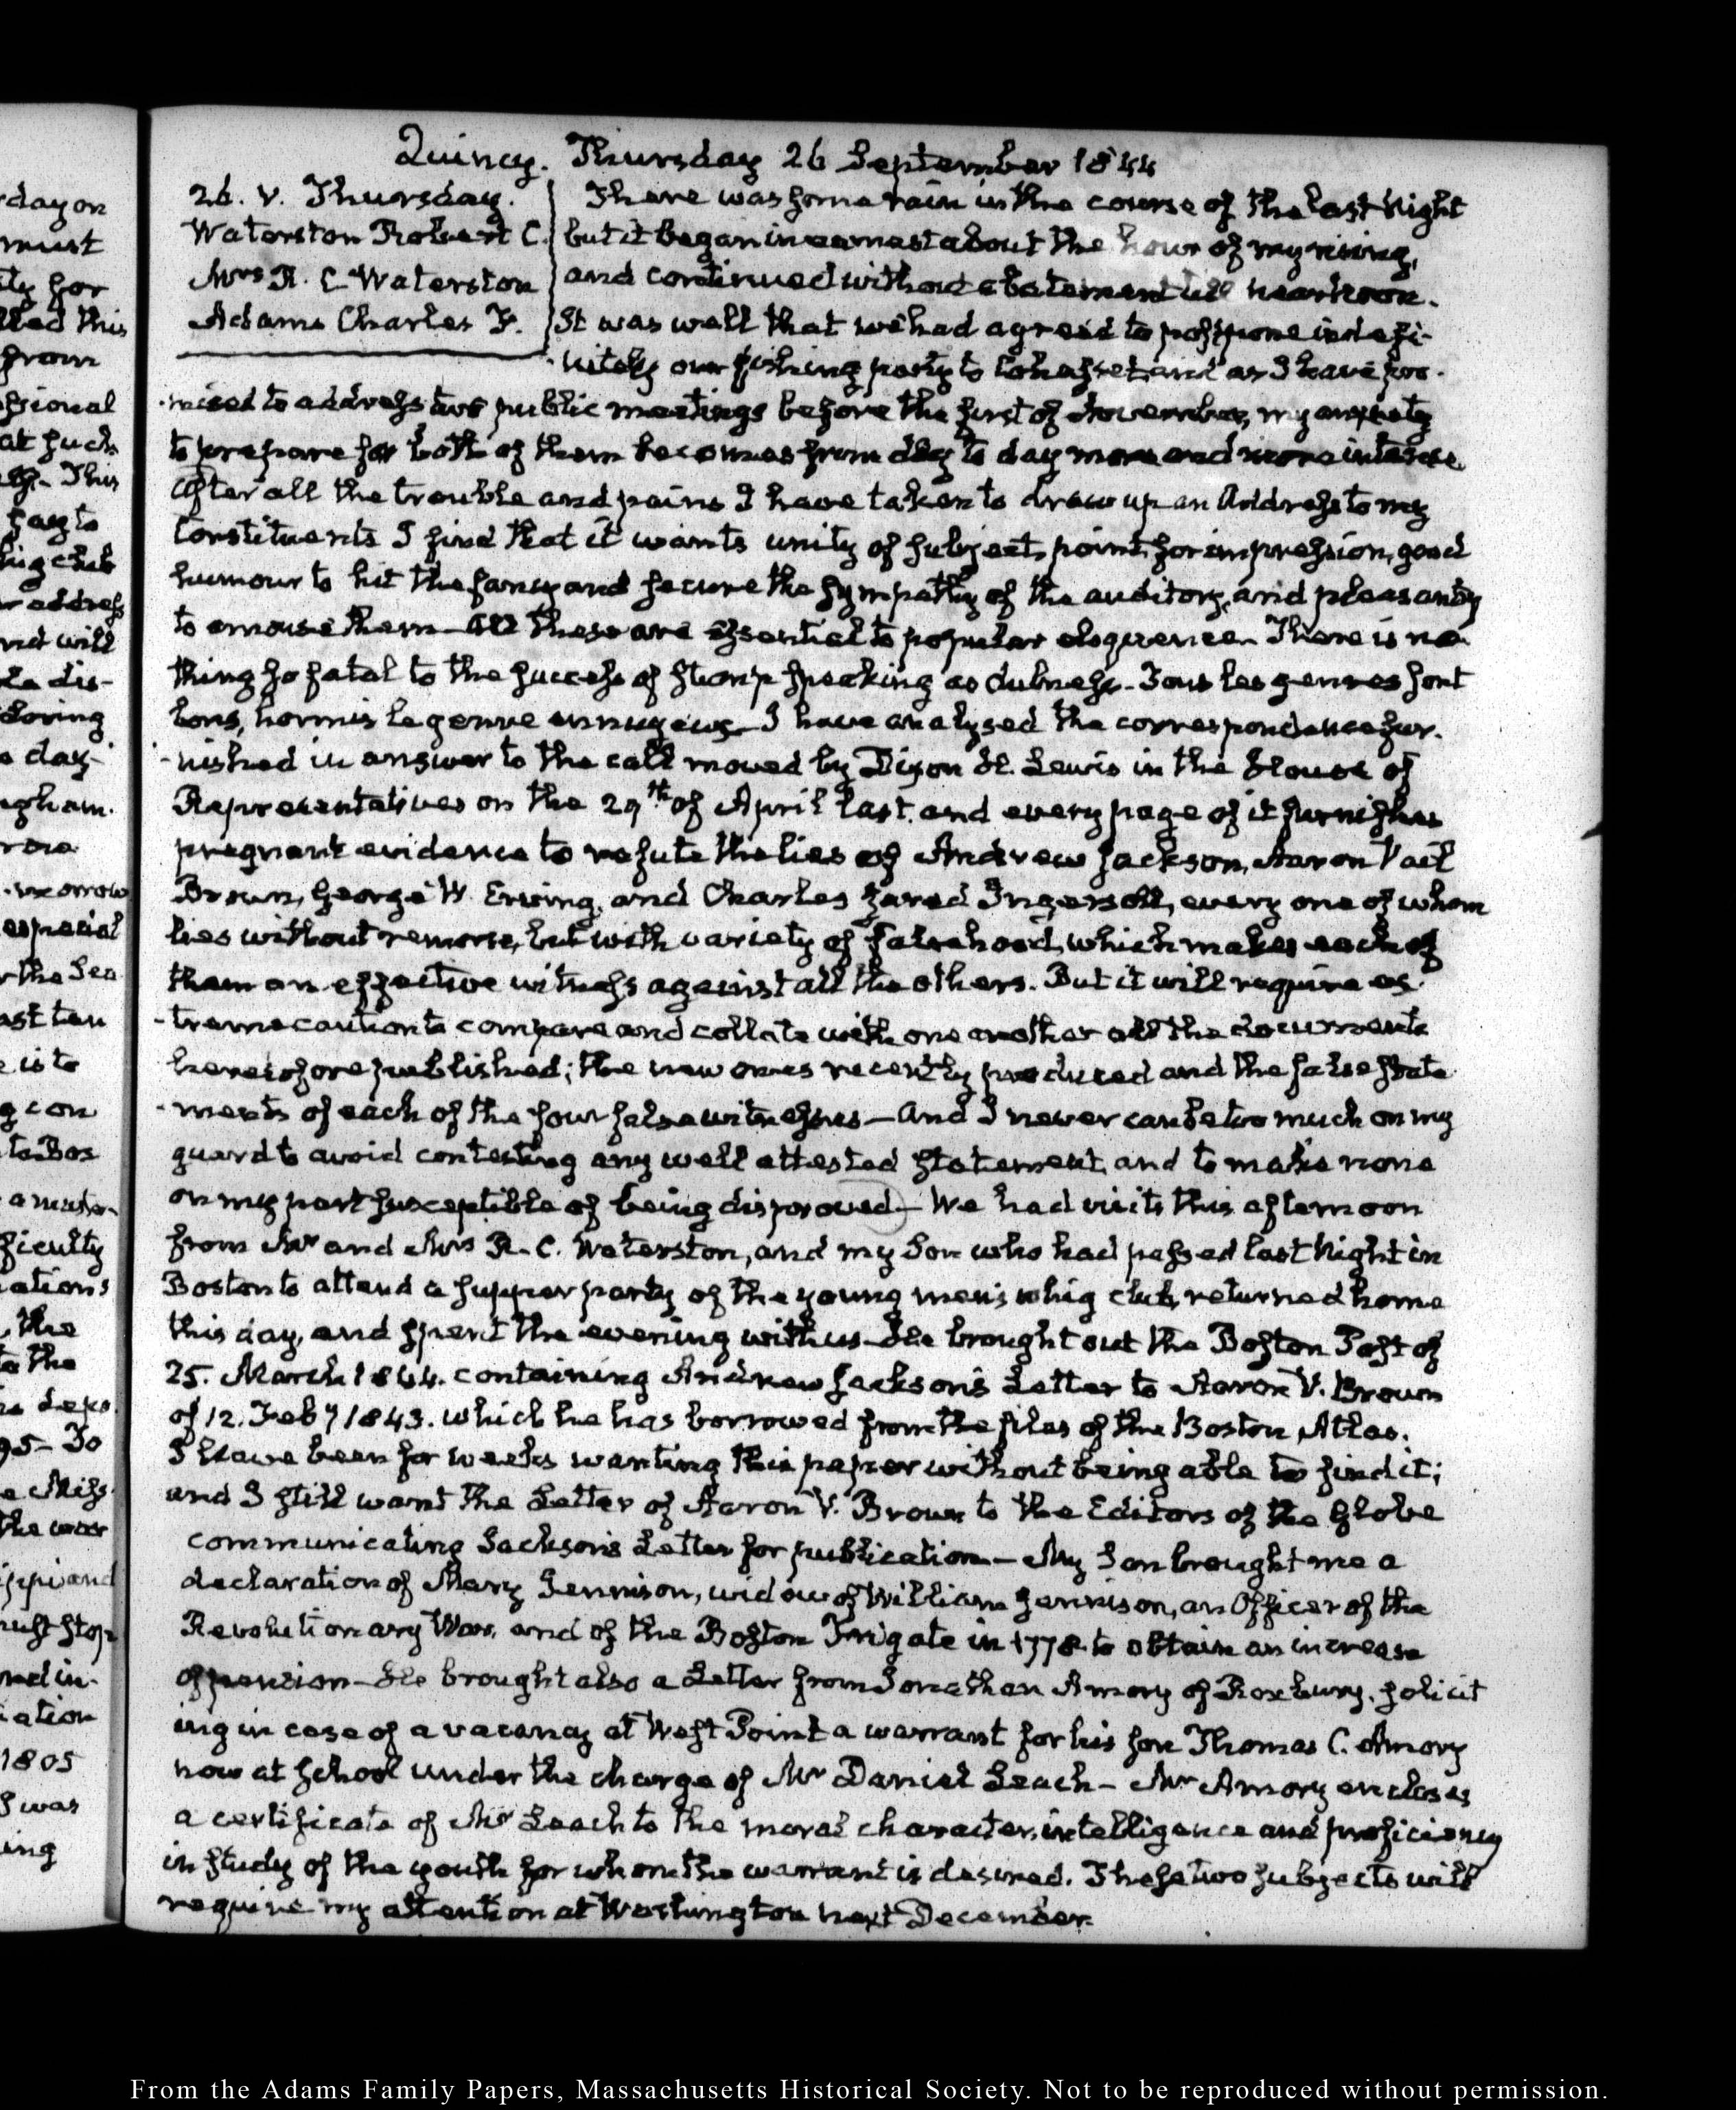 Quincy. Thursday 26 September 1844
26. V. Thursday.
Waterston Robert C.
Mrs R. C Waterston
Adams Charles F.
There was some rain in the course of the last Night
but it began in earnest about the hour of my rising,
and continued without abatement till near noon.
It was well that we had agreed to postpone indefi-
-nitely our fishing party to Cohasset and as I have pro-
-mised to address two public meetings before the first of November, my anxiety
to prepare for both of them becomes from day to day more and more intense
After all the trouble and pains I have taken to draw up an Address to my
Constituents I find that it wants unity of subject, point, for impression, good
humour to hit the fancy and secure the sympathy of the auditory, and pleasantry
to amuse them—All these are essential to popular eloquence. There is no
thing so fatal to the success of stump speaking as dulness. Tous les genres sont
bons, hormis le genre ennuyeux—I have analysed the correspondence fur-
-nished in answer to the call moved by Dixon H. Lewis in the House of
Representatives on the 29th of April last, and every page of it furnishes
pregnant evidence to refute the lies of Andrew Jackson, Aaron Vail
Brown, George W. Erving, and Charles Jared Ingersoll, every one of whom
lies without remorse, but with variety of falsehood, which makes each of
them an effective witness against all the others. But it will require ex-
-treme caution to compare and collate with one another all the documents
heretofore published; the new ones recently produced and the false state
-ments of each of the four false witnesses—And I never can be too much on my
guard to avoid contesting any well attested statement, and to make none
on my part susceptible of being disproved—We had visits this afternoon
from Mr and Mrs R. C. Waterston, and my Son who had passed last Night in
Boston to attend a supper party of the young men's whig club, returned home
this day, and spent the evening with us—He brought out the Boston Post of
25. March 1844. containing Andrew Jackson's Letter to Aaron V. Brown
of 12. Feby 1843. which he has borrowed from the files of the Boston Atlas.
I have been for weeks wanting this paper without being able to find it;
and I still want the Letter of Aaron V. Brown to the Editors of the Globe
communicating Jackson's Letter for publication—My Son brought me a
declaration of Mary Jennison, widow of William Jennison, an Officer of the
Revolutionary War, and of the Boston Frigate in 1778. to obtain an increase
of pension—He brought also a Letter from Jonathan Amory of Roxbury. solicit
ing in case of a vacancy at West Point a warrant for his son Thomas C. Amory
now at school under the charge of Mr Daniel Leach—Mr Amory encloses
a certificate of Mr Leach to the moral character, intelligence and proficiency
in study of the youth for whom the warrant is desired. These two subjects will
require my attention at Washington next December.
rday on
must
from
at such
This
say to
address
and will
dis-
day
is to
the
1805
I was
ing
From the Adams Family Papers, Massachusetts Historical Society. Not to be reproduced without permission.